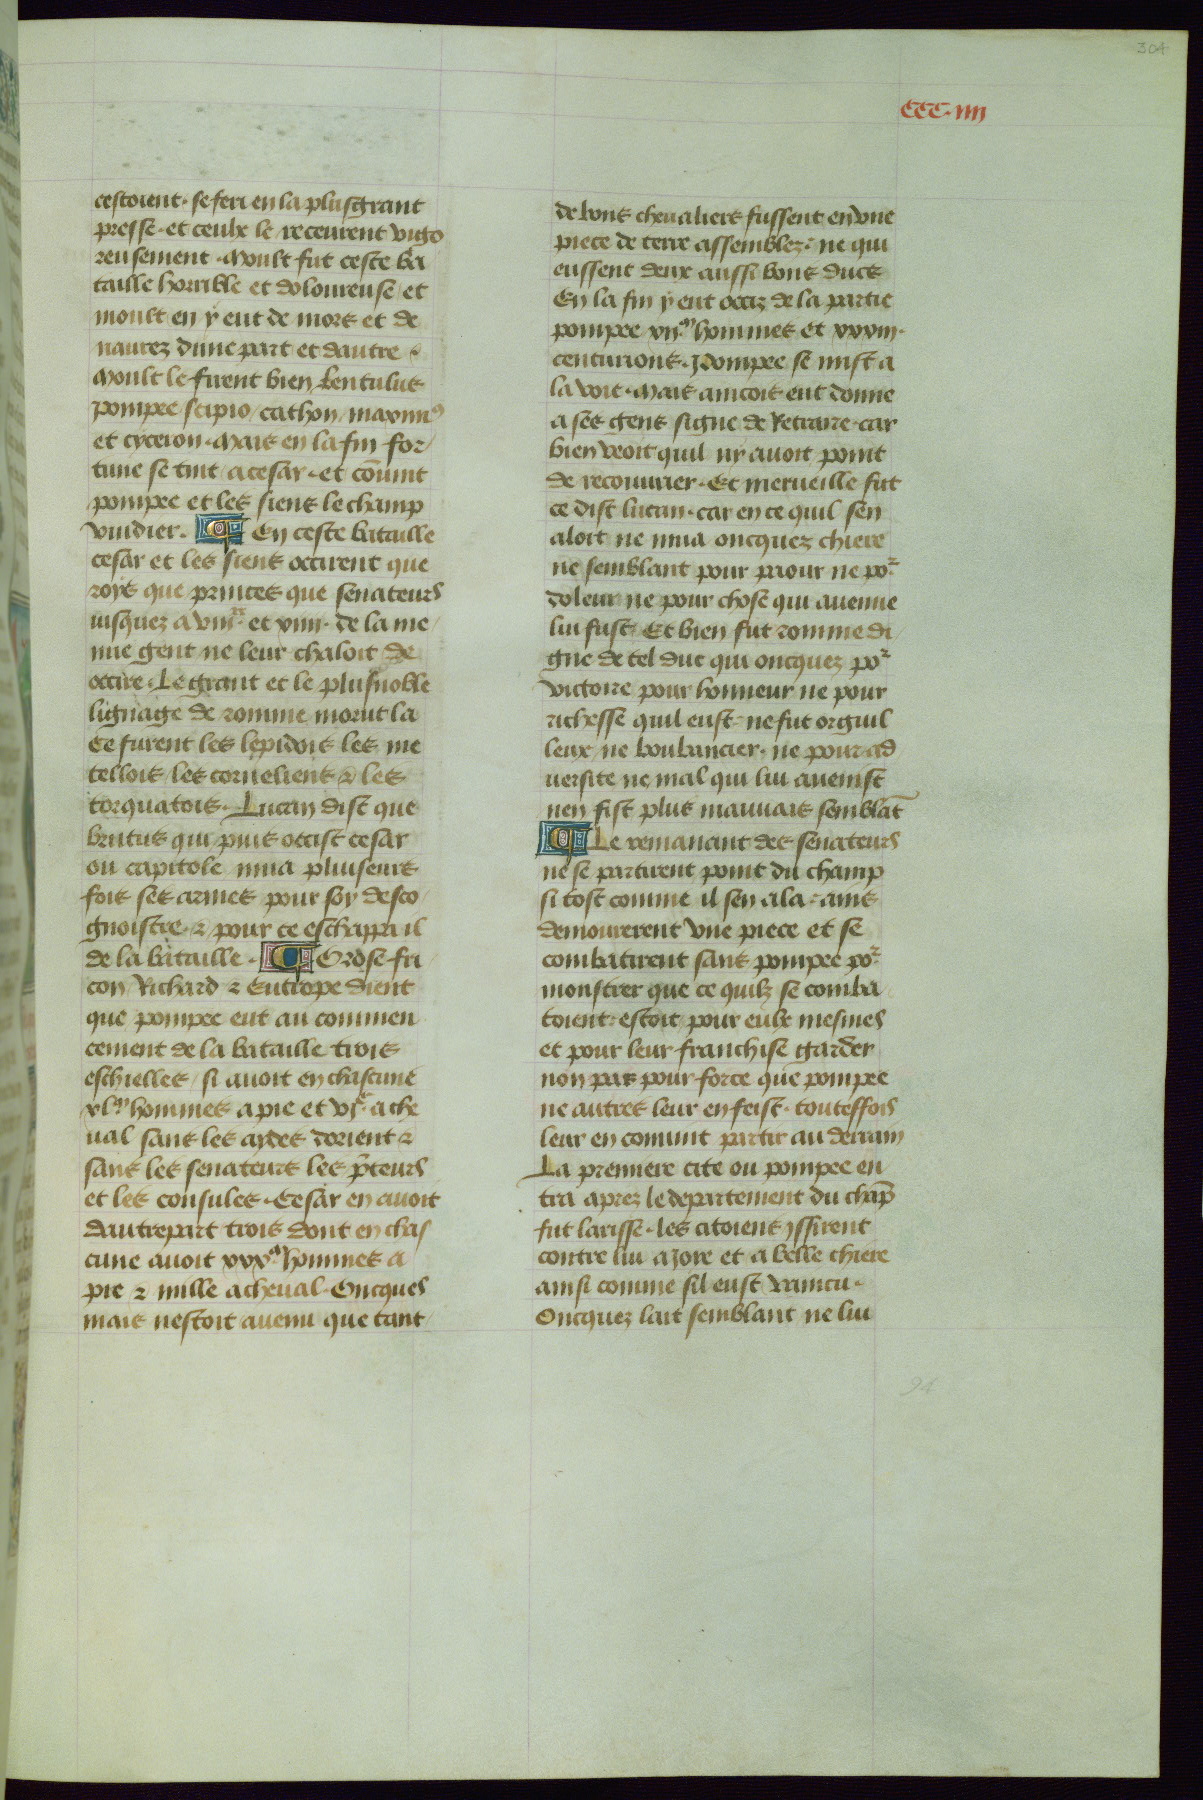 304
CCC.iiii
cestoient. se feri en la plus grant
presse. et ceulx le receurent vigo
reusement. Moult fut ceste ba
taille horrible et doloureuse et
moult en y eut de mors et de
naurez dune part et dautre
Moult le firent bien Lentulus
Pompee scipio / cathon / maximꝰ
et cyceron. Mais en la fin for/
tune se tint a cesar. et cōuint
pompee et les siens le champ
vuidier. En ceste bataille
cesar et les siens occirent que
roys que princes que senateurs
iusquez a viiixx. et xiiii. de la me/
nue gent ne leur chaloit de
occire. Le grant et le plus noble
lignage de romme morut la
Ce furent les lepidois les me
tellois / les corneliens & les
torquatois. Lucan dist que
brutus qui puis occist cesar
ou capitole mua pluiseurs
fois ses armes pour soy desco/
gnoistre. & pour ce eschappa il
de la bataille. Orose fri
con Richard & Eutrope dient
que pompee eut au commen
cement de la bataille trois
eschielles / si auoit en chascune
xlm hommes a pie et vjc a che
ual sans les aydes dorient &
sans les senateurs les p̄teurs
et les consules. Cesar en auoit
dautrepart trois dont en chas/
cune auoit xxxm hommes a
pie & mille a cheual. Oncques
mais nestoit auenu que tant
de bons cheualiers fussent en vne
piece de terre assemblez. ne qui
eussent deux aussi bons ducs
En la fin y eut occiz de la partie
pompee xii.m hommes et xxxiii.
centurions. Pompee se mist a
la voie. Mais aincois eut donne
a ses gens signe de Retraire. car
bien veoit quil ny auoit point
de recouurier. Et merueille fut
ce dist lucan. car en ce quil sen
aloit ne mua oncquez chiere
ne semblant pour paour ne por
doleur ne pour chose qui auenue
lui fust. Et bien fut romme di/
gne de tel duc qui oncquez por
victoire pour honneur ne pour
richesse quil eust. ne fut orguil
leux / ne boubancier. ne pour ad
uersite ne mal qui lui auenist
nen fist plus mauuais semblāt
Le remanant des senateurs
ne se partirent point du champ
si tost comme il sen ala. ains
demourerent vne piece et se
combatirent sans pompee por
monstrer que ce quilz se comba
toient. estoit pour eulx mesmes
et pour leur franchise garder
non pas pour force que pompee
ne autres leur en feist. touteffois
leur en conuint partir au derrain
La premiere cite ou pompee en
tra aprez le departement du chāp
fut larisse. les citoiens yssirent
contre lui a ioie et a belle chiere
ainsi comme sil eust vaincu.
Oncquez lait semblant ne lui
94